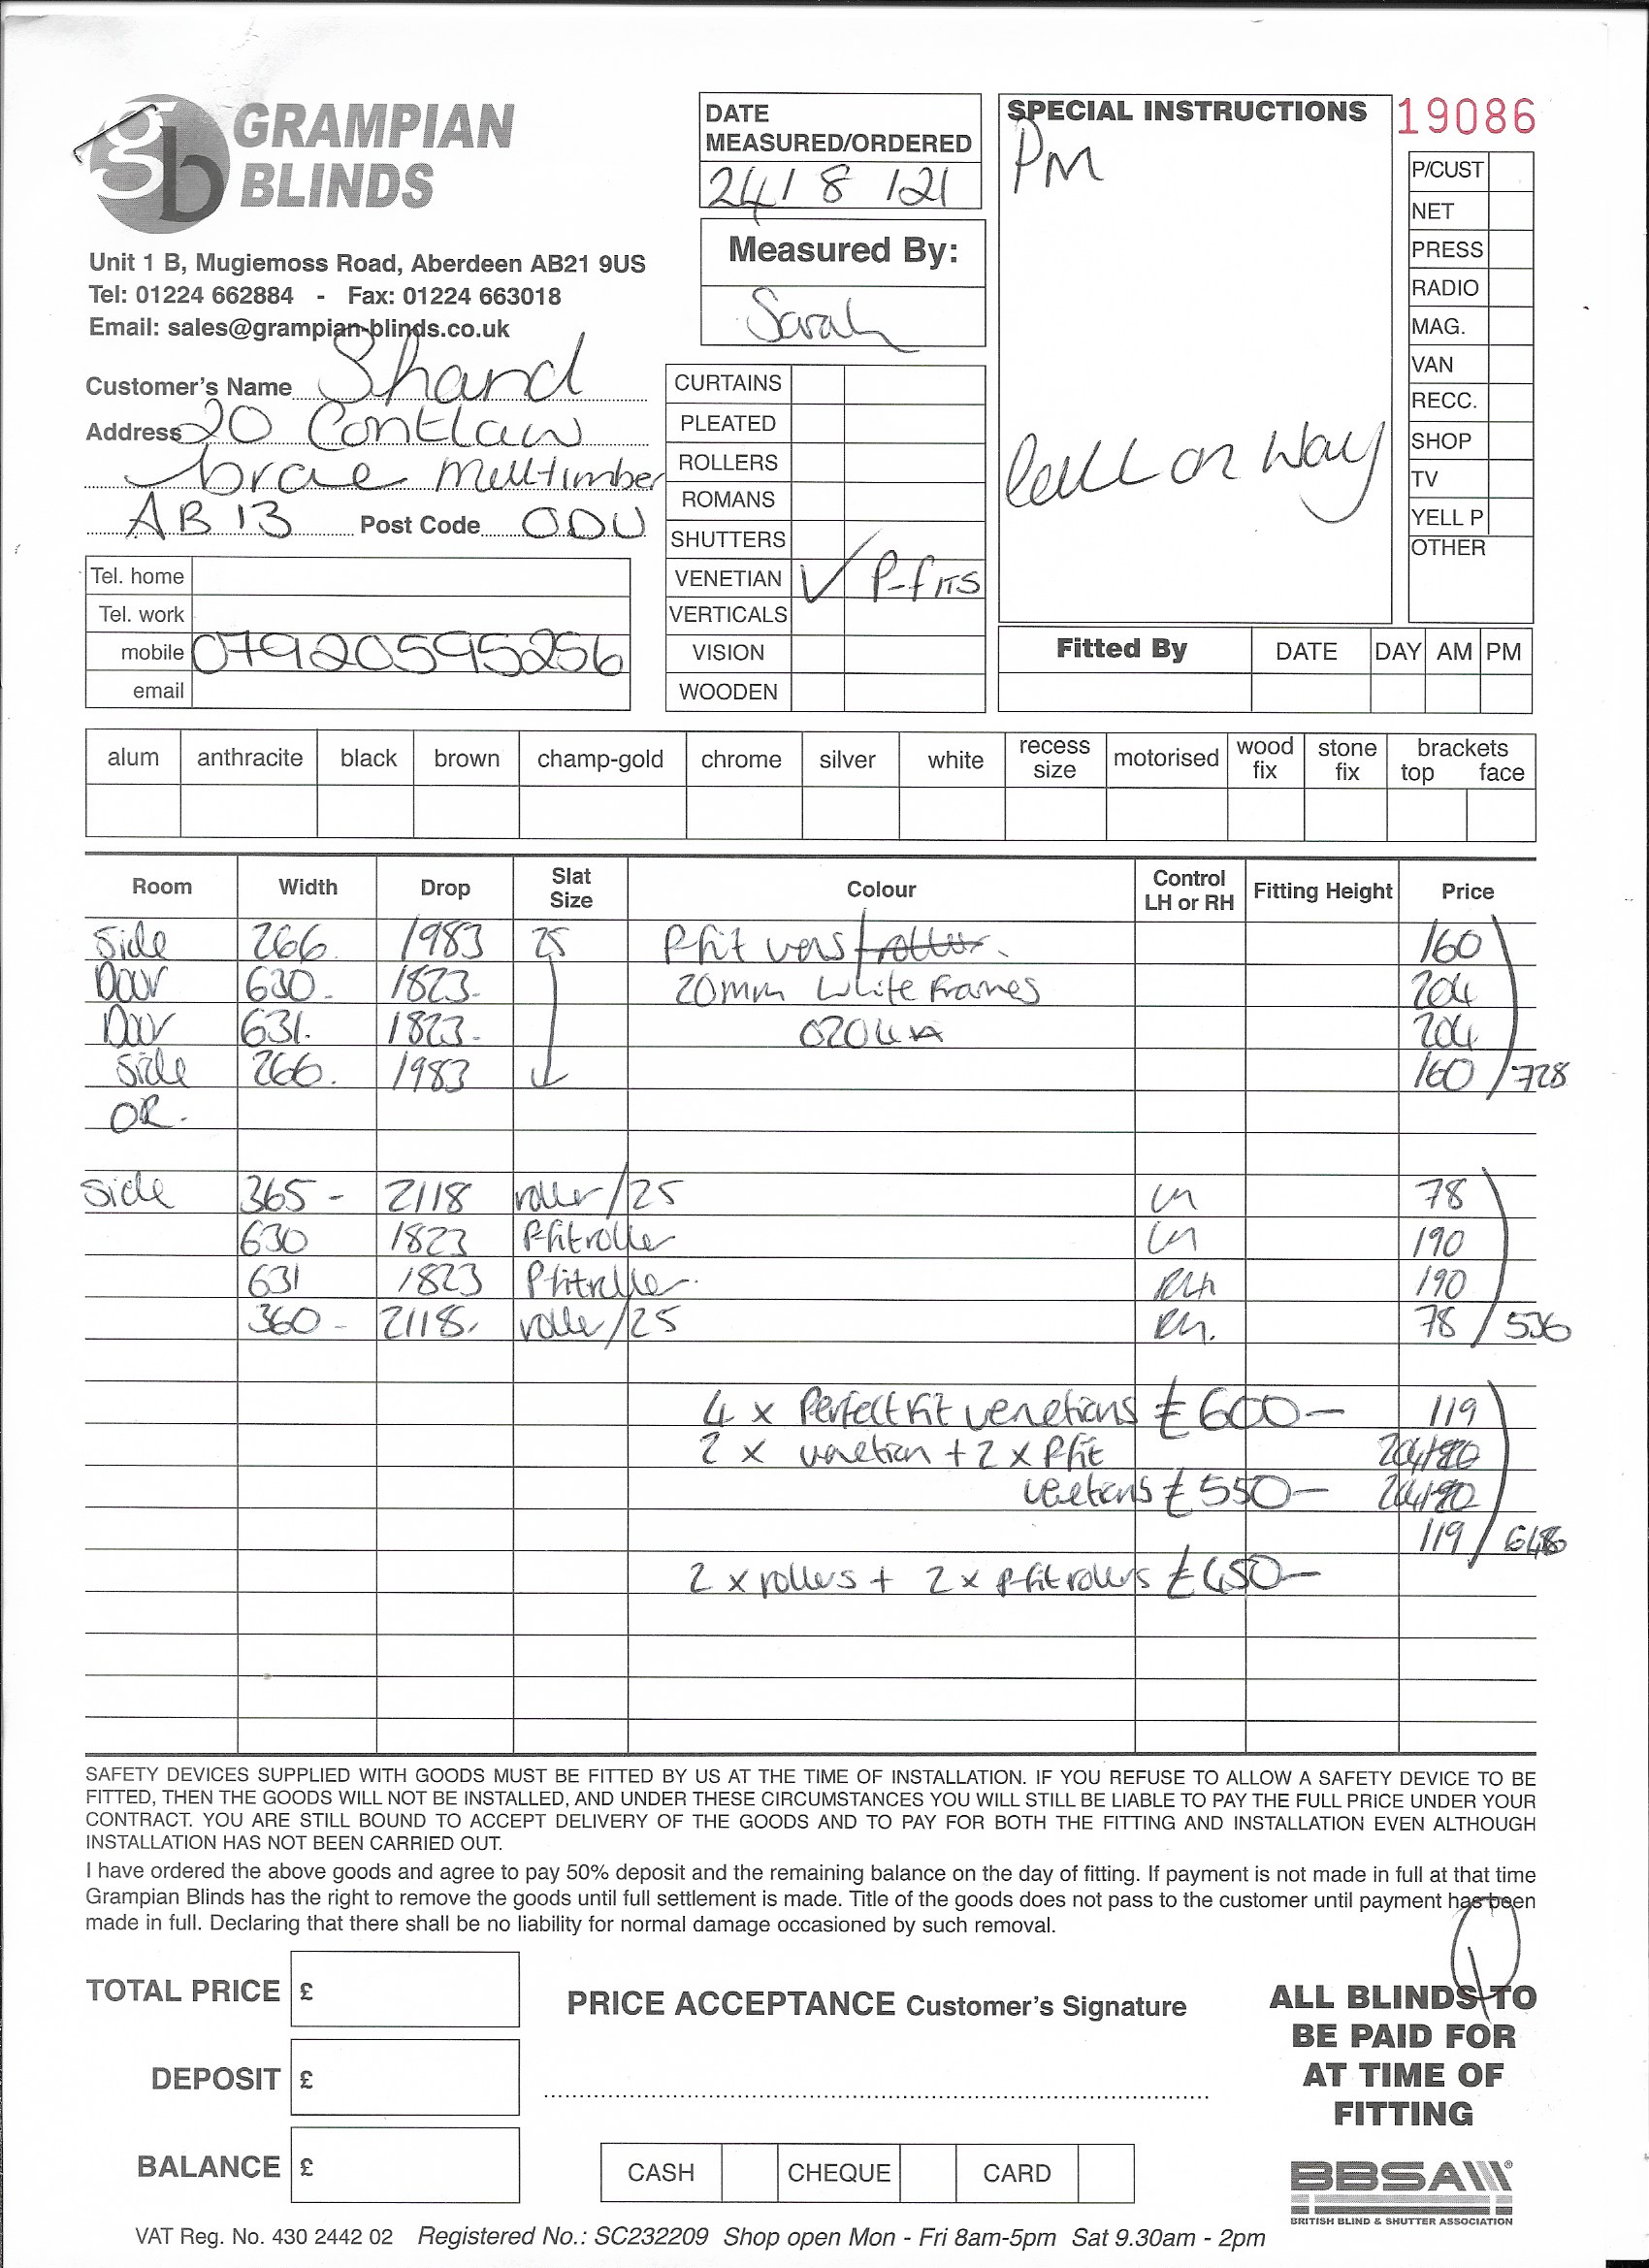 GRAMPIAN
BLINDS
Unit 1 B, Mugiemoss Road, Aberdeen AB21 9US
Tel: 01224 662884 - Fax: 01224 663018
Email: sales@grampian-blinds.co.uk
Customer's Name Shand
Address 20 Contlaw
brae Milltimber
AB13 Post Code 0DU
Tel. home
Tel. work
mobile 07920595256
email
DATE
MEASURED/ORDERED
24/8/21
Measured By:
Sarah
CURTAINS
PLEATED
ROLLERS
ROMANS
SHUTTERS
VENETIAN ✓ P-fITS
VERTICALS
VISION
WOODEN
SPECIAL INSTRUCTIONS
PM
Call on Way
19086
P/CUST
NET
PRESS
RADIO
MAG.
VAN
RECC.
SHOP
TV
YELL P
OTHER
Fitted By DATE DAY AM PM
alum anthracite black brown champ-gold chrome silver white recess size motorised wood fix stone fix brackets top face
Room Width Drop Slat Size Colour Control LH or RH Fitting Height Price
Side 266. 1983 25 Pfit vens 160
Door 630. 1823. 20mm White Frames 204
Door 631. 1823. 204
Side 266. 1983 160 / 728
OR.
Side 365 - 2118 roller/25 LH 78
630 1823 Pfit roller LH 190
631 1823 Pfit roller. RH 190
360 - 2118. roller/25 RH. 78 / 536
4 x Perfect Fit venetians £600- 119
2 x venetian + 2 x Pfit
venetians £550-
119 / 646
2 x rollers + 2 x P-fit rollers £450-
SAFETY DEVICES SUPPLIED WITH GOODS MUST BE FITTED BY US AT THE TIME OF INSTALLATION. IF YOU REFUSE TO ALLOW A SAFETY DEVICE TO BE
FITTED, THEN THE GOODS WILL NOT BE INSTALLED, AND UNDER THESE CIRCUMSTANCES YOU WILL STILL BE LIABLE TO PAY THE FULL PRICE UNDER YOUR
CONTRACT. YOU ARE STILL BOUND TO ACCEPT DELIVERY OF THE GOODS AND TO PAY FOR BOTH THE FITTING AND INSTALLATION EVEN ALTHOUGH
INSTALLATION HAS NOT BEEN CARRIED OUT.
I have ordered the above goods and agree to pay 50% deposit and the remaining balance on the day of fitting. If payment is not made in full at that time
Grampian Blinds has the right to remove the goods until full settlement is made. Title of the goods does not pass to the customer until payment has been
made in full. Declaring that there shall be no liability for normal damage occasioned by such removal.
TOTAL PRICE £
DEPOSIT £
BALANCE £
PRICE ACCEPTANCE Customer's Signature
CASH CHEQUE CARD
ALL BLINDS TO
BE PAID FOR
AT TIME OF
FITTING
BBSA
BRITISH BLIND & SHUTTER ASSOCIATION
VAT Reg. No. 430 2442 02 Registered No.: SC232209 Shop open Mon - Fri 8am-5pm Sat 9.30am - 2pm